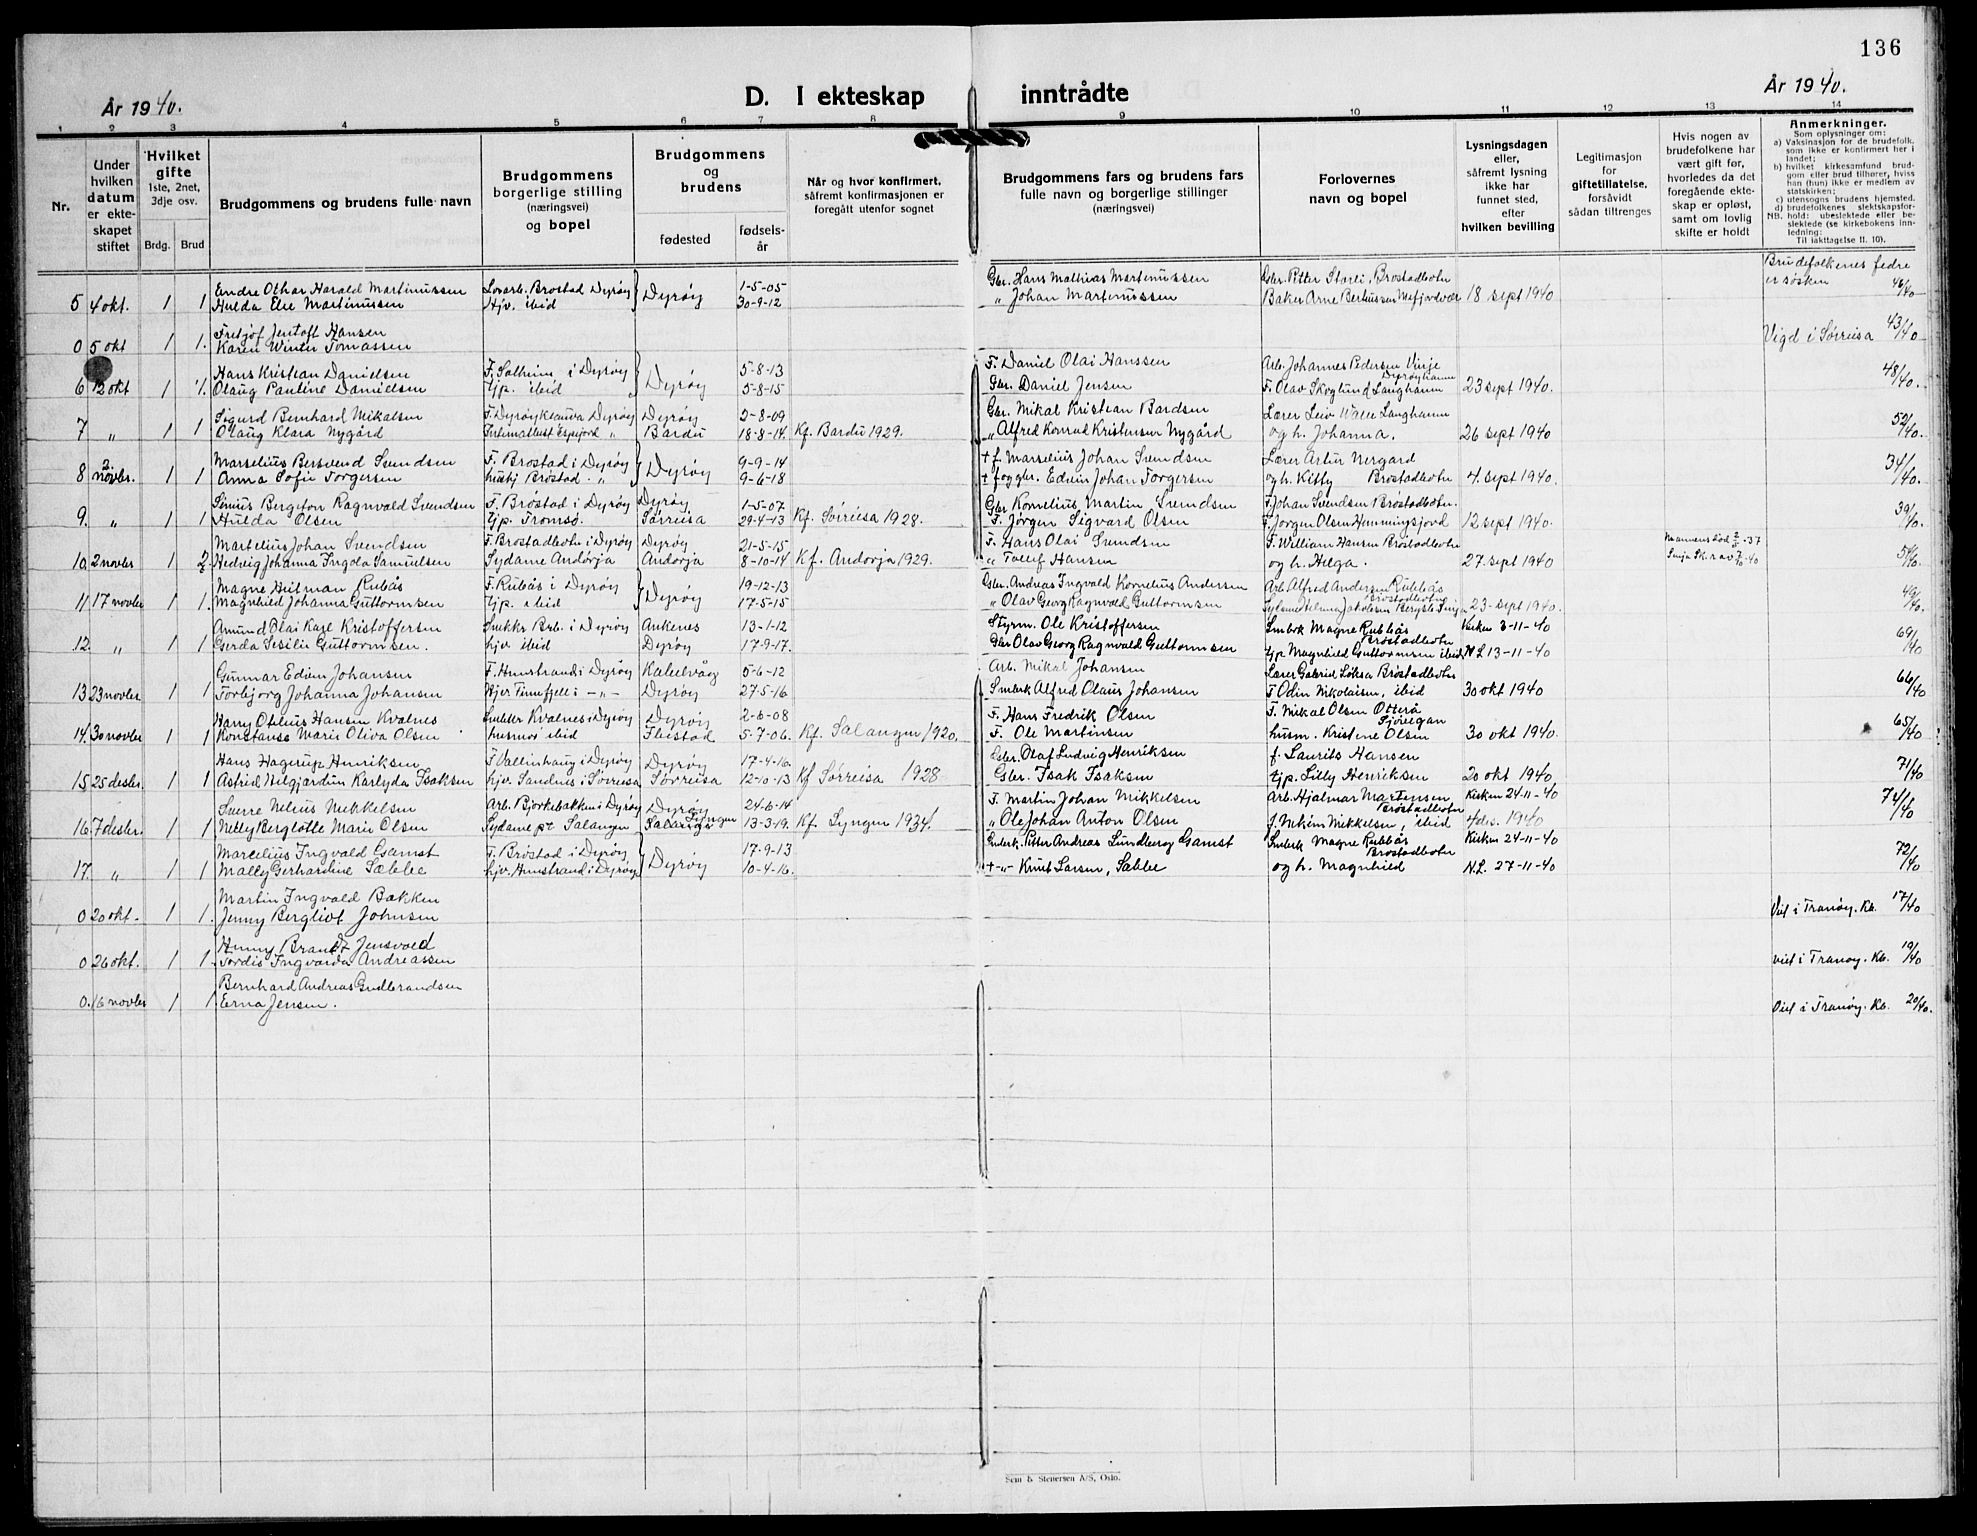 136
År 1940.
D. I ekteskap inntrådte
År 1940.
1 2 3 4 5 6 7 8 9 10 11 12 13 14
Nr.
Under hvilken datum er ekteskapet stiftet
Hvilket gifte 1ste, 2net, 3dje osv.
Brdg. Brud
Brudgommens og brudens fulle navn
Brudgommens borgerlige stilling (næringsvei) og bopel
Brudgommens og brudens
fødested
fødselsår
Når og hvor konfirmert, såfremt konfirmasjonen er foregått utenfor sognet
Brudgommens fars og brudens fars fulle navn og borgerlige stillinger (næringsvei)
Forlovernes navn og bopel
Lysningsdagen eller, såfremt lysning ikke har funnet sted, efter hvilken bevilling
Legitimasjon for giftetillatelse, forsåvidt sådan tiltrenges
Hvis nogen av brudefolkene har vært gift før, hvorledes da det foregående ekteskap er opløst, samt om lovlig skifte er holdt
Anmerkninger.
Som oplysninger om:
a) Vaksinasjon for de brudefolk, som ikke er konfirmert her i landet;
b) hvilket kirkesamfund brudgom eller brud tilhører, hviss han (hun) ikke er medlem av statskirken;
c) utensogns brudens hjemsted.
d) brudefolkenes slektskapsforhold: ubeslektede eller beslektede (se kirkebokens innledning:
NB.
Til iakttagelse II. 10).
Endre Othar Harald Martinussen Losarb. Brostad Dyrøy 1-5-05 Gbr. Hans Mathias Martinussen Gbr. Peter Starei, Brøstadbotn Brudefolkenes fedre
5 4 okt. 1 1 Hulda Elee Martinussen Hjv. ibid Dyrøy 30-9-12 " Johan Martinussen Baker Arne Berntssen Mefjordvær 18 sept 1940 er søsken 46/40
Fritjof Jentoft Hansen
0 5 okt 1 1. Karen Winter Tomassen Vigd i Sørreisa 43/40
Hans Kristian Danielsen F. Solheim i Dyrøy 5-8-13 F. Daniel Olai Hanssen Arb. Johannes Pedersen Vinje Dyrøyhamn
6 12 okt 1 1. Olaug Pauline Danielsen tjp. ibid Dyrøy 5-8-15 Gbr. Daniel Jensen F. Olav Skoglund Langhamn 23 sept 1940. 48/40.
Sigurd Bernhard Mikalsen F. Dyrøyklauva Dyrøy Dyrøy 2-8-09 Gbr. Mikal Kristian Bardsen Lærer Leiv Walle Langhamn
7 " 1 1 Olaug Klara Nygård Espejord " Bardu 18-8-14. Kf. Bardu 1929. " Alfred Konrad Kristensen Nygård og h. Johanna. 26 sept 1940 52/40.
Marselius Bersvend Svendsen F. Brøstad i Dyrøy 9-9-14 + f. Marselius Johan Svendsen Lærer Artur Nergård
8 2 novbr. 1 1 Anna Sofie Torgersen hushj Brøstad. " Dyrøy 9-6-18 + f og gbr. Edvin Johan Torgersen og h. Kitty Brøstadbotn 4. sept 1940. 34/40.
Sirius Bergeton Ragnvald Svendsen F. Brøstad i Dyrøy Dyrøy 1-5-07 Gbr Kornelius Martin Svendsen F Johan Svendsen Brøstadbotn.
9. " 1 1 Hulda Olsen tjp. Tromsø. Sørreisa 29-4-13 Kf. Sørreisa 1928. F. Jørgen Sigvard Olsen F. Jørgen Olsen Hemmingsjord 12 sept 1940. 39/40.
Martelius Johan Svendsen F. Brøstadbotn i Dyrøy Dyrøy 21-5-15 F. Hans Olai Svendsen F. William Hansen Brøstadbotn Mannens død -37
10. 2 novbr 1 2 Hedvig Johanna Ingola Samuelsen Sydame Andørja Andørja 8-10-14 Kf. Andørja 1929. " Tollef Hansen og h. Helga. 27. sept 1940 54/40.
Magne Heitman Rubås F. Rubås i Dyrøy 19-12-13 Gbr. Andreas Ingvald Kornelius Andersen Arb. Alfred Andersen Rubbås Brøstadbotn
11 17 novbr 1 1. Magnhild Johanna Guttormsen tjp. ibid Dyrøy 17-5-15 " Olav Georg Ragnvald Guttormsen 23-sept 1940. 49/40.
Amund Olai Karl Kristoffersen Snekker Brb. i Dyrøy Ankenes 13-1-12 Styrm. Ole Kristoffersen Smbrk Magne Rubbås Brøstadbotn Kirken 3-11-40
12. " 1 1 Gerda Sesilie Guttormsen. hjv ibid Dyrøy 17-9-17. Gbr Olav Georg Ragnvald Guttormsen tjp Magnhild Guttormsen ibid N.L 13-11-40 69/40
Gunnar Edvin Johansen F. Hunstrand i Dyrøy Kaleelvåg 5-6-12 Arb. Mikal Johansen Lærer Gabriel Løksa Brøstadbotn
13 23 novbr 1 1 Torbjørg Johanna Johansen Hjv Finnfjell i -"- Dyrøy 27-5-16 Smbrk Alfred Olaus Johansen F Odin Nikolaisen, ibid 30 okt 1940 66/40
Harry Otelius Hansen Kvalnes Kvalnes i Dyrøy Dyrøy 2-6-08 F. Hans Fredrik Olsen F. Mikal Olsen Otterå Sjøvegan
14. 30 novbr 1 1 Konstanse Marie Oliva Olsen husmor ibid Ibestad 5-7-06. Kf. Salangen 1920. F. Ole Martinsen husm. Kristine Olsen 30 okt 1940. 65/40
Hans Hagerup Henriksen F Vollinhaug i Dyrøy Dyrøy 17-4-16. Gbr. Olaf Ludvig Henriksen f. Laurits Hansen
15 25 desbr. 1 1 Astrid Helgjardin Karlyda Isaksen hjv. Sandnes i Sørreisa Sørreisa 12-10-13 Kf Sørreisa 1928 Gbr. Isak Isaksen tjp. Lilly Henriksen 20 okt 1940. 71/40
Sverre Nelius Mikkelsen Arb. Bjørkebakken i Dyrøy Dyrøy 24-6-14 F. Martin Johan Mikkelsen Arb. Hjalmar Martensen Brøstadbotn Kirken 24-11-40
16. 7 desbr. 1 1 Nelly Berglotte Marie Olsen Sydame pt Salangen Lyngen 13-3-19. Kf. Lyngen 1934. " Ole Johan Anton Olsen J. Nekim Mikkelsen, ibid 4 des. 1940 74/40
Marcelius Ingvald Gamst F. Brøstad i Dyrøy 17-9-13 Smbrk. Peter Andreas Lundberg Gamst Smbrk Magne Rubbås Brøstadbotn Kirken 24-11-40
17. " 1 1 Mally Gerhardine Sæbbe hjv. Hunstrand i Dyrøy Dyrøy 10-4-16. + -"- Knut Larsen, Sæbbe og h. Magnhild N.L. 27-11-40 72/40
Martin Ingvald Bakken
0 20 okt. 1 1. Jenny Bergliot Johnsen Viet i Tranøy. Kb. 17/40
Henny Brandt Jensvold
0 26 okt. 1 1. Tordis Ingvarda Andreassen viet i Tranøy. Kb. 19/40
Bernhard Andreas Gudbrandsen
0. 16 novbr 1 1 Erna Jensen. Viet i Tranøy. Kb. 20/40.
Sem & Stenersen A/S, Oslo.